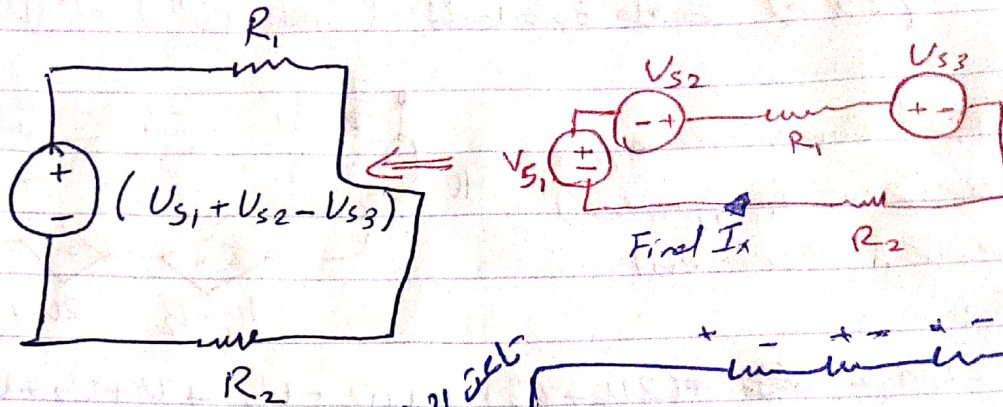 R₁
+
-
(Us₁ + Us2 - Us3)
R₂
Us2
- +
Us3
+ -
Vs₁
+
-
R₁
Find Ix
R₂
+ - + - + -